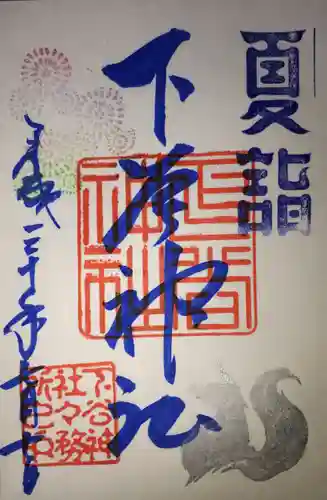 夏詣
下谷神社
下谷神社
平成三十年七月
下谷神
社々務
所之印